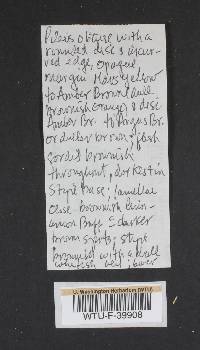 Pileus obtuse with a
rounded disc & incur-
ved edge, opaque
margin Mars Yellow
to Amber Brown, dull
brownish orange, & disc
Amber Br. to Argus Br.
or duller brown; flesh
sordid brownish
throughout, darkest in
stipe base; lamellae
close brownish
Buff & darker
brown spots; stipe
brownish with a dull
whitish belt; lower
U. Washington Herbarium (WTU)
WTU-F-39908